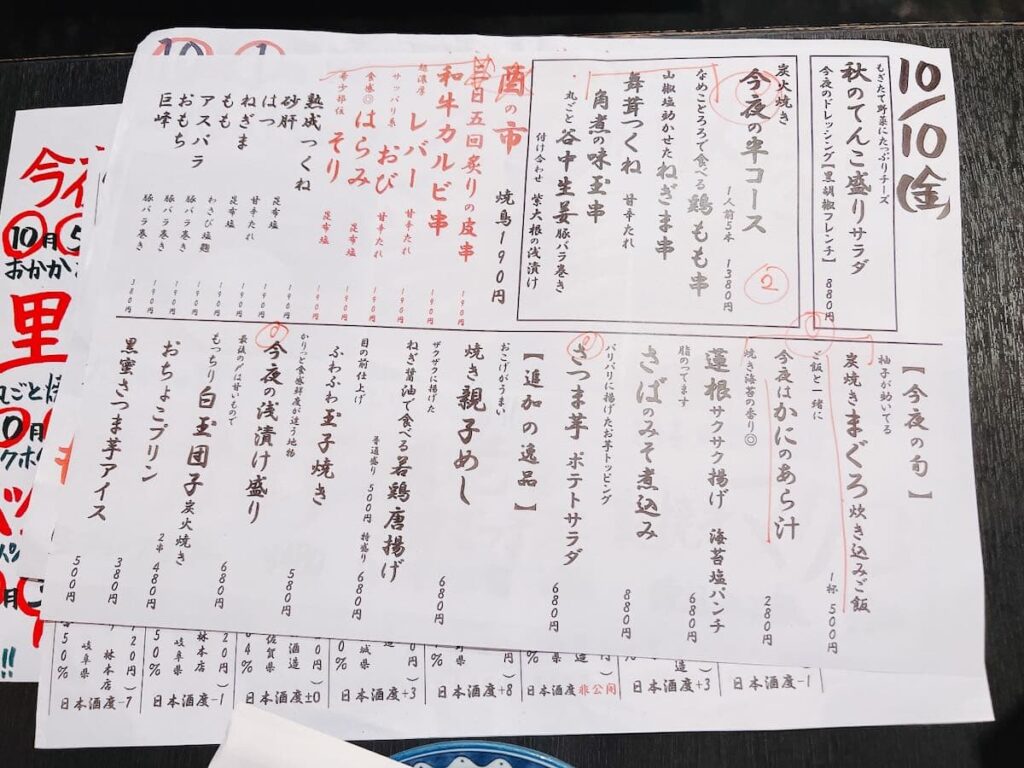 10/10(金)
もぎたて野菜にたっぷりチーズ
秋のてんこ盛りサラダ
今夜のドレッシング【黒胡椒フレンチ】
880円
炭火焼き
今夜の串コース
1人前5本 1380円
②
なめことろろで食べる鶏もも串
山椒塩効かせたねぎま串
舞茸つくね 甘辛たれ
角煮の味玉串
丸ごと谷中生姜豚バラ巻き
付け合わせ 紫大根の浅漬け
酉の市
焼鳥190円
三日五回炙りの皮串
190円
和牛カルビ串
190円
超濃厚
レバー 甘辛たれ
190円
サッパリ系
おび 甘辛たれ
190円
食感◎
はらみ 昆布塩
190円
希少部位
そり 昆布塩
190円
熟成つくね
190円
砂肝 昆布塩
190円
はつ
190円
ねぎま 甘辛たれ
190円
もも 昆布塩
190円
わさび塩麹
190円
アスパラ 豚バラ巻き
190円
おもち 豚バラ巻き
190円
巨峰 豚バラ巻き
380円
【今夜の旬】
柚子が効いてる
炭焼きまぐろ炊き込みご飯
1杯 500円
ご飯と一緒に
今夜はかにのあら汁
280円
焼き海苔の香り◎
蓮根サクサク揚げ 海苔塩パンチ
680円
脂のってます
さばのみそ煮込み
880円
パリパリに揚げたお芋トッピング
さつま芋ポテトサラダ
680円
【追加の逸品】
おこげがうまい
焼き親子めし
680円
ザクザクに揚げた
ねぎ醤油で食べる若鶏唐揚げ
普通盛り 500円 特盛り 680円
目の前仕上げ
ふわふわ玉子焼き
580円
かりっと食感鮮度が違う地物
今夜の浅漬け盛り
680円
最後の〆は甘いもので
もっちり白玉団子 炭火焼き
2串 480円
おちょこプリン
380円
黒蜜さつま芋アイス
500円
日本酒度-1
日本酒度+3
日本酒度非公開
日本酒度+8
日本酒度+3
日本酒度±0
日本酒度-1
日本酒度-7
佐賀県
岐阜県
林本店
岐阜県
林本店
10月5
おかか
里
ごと焼
クホク
!!